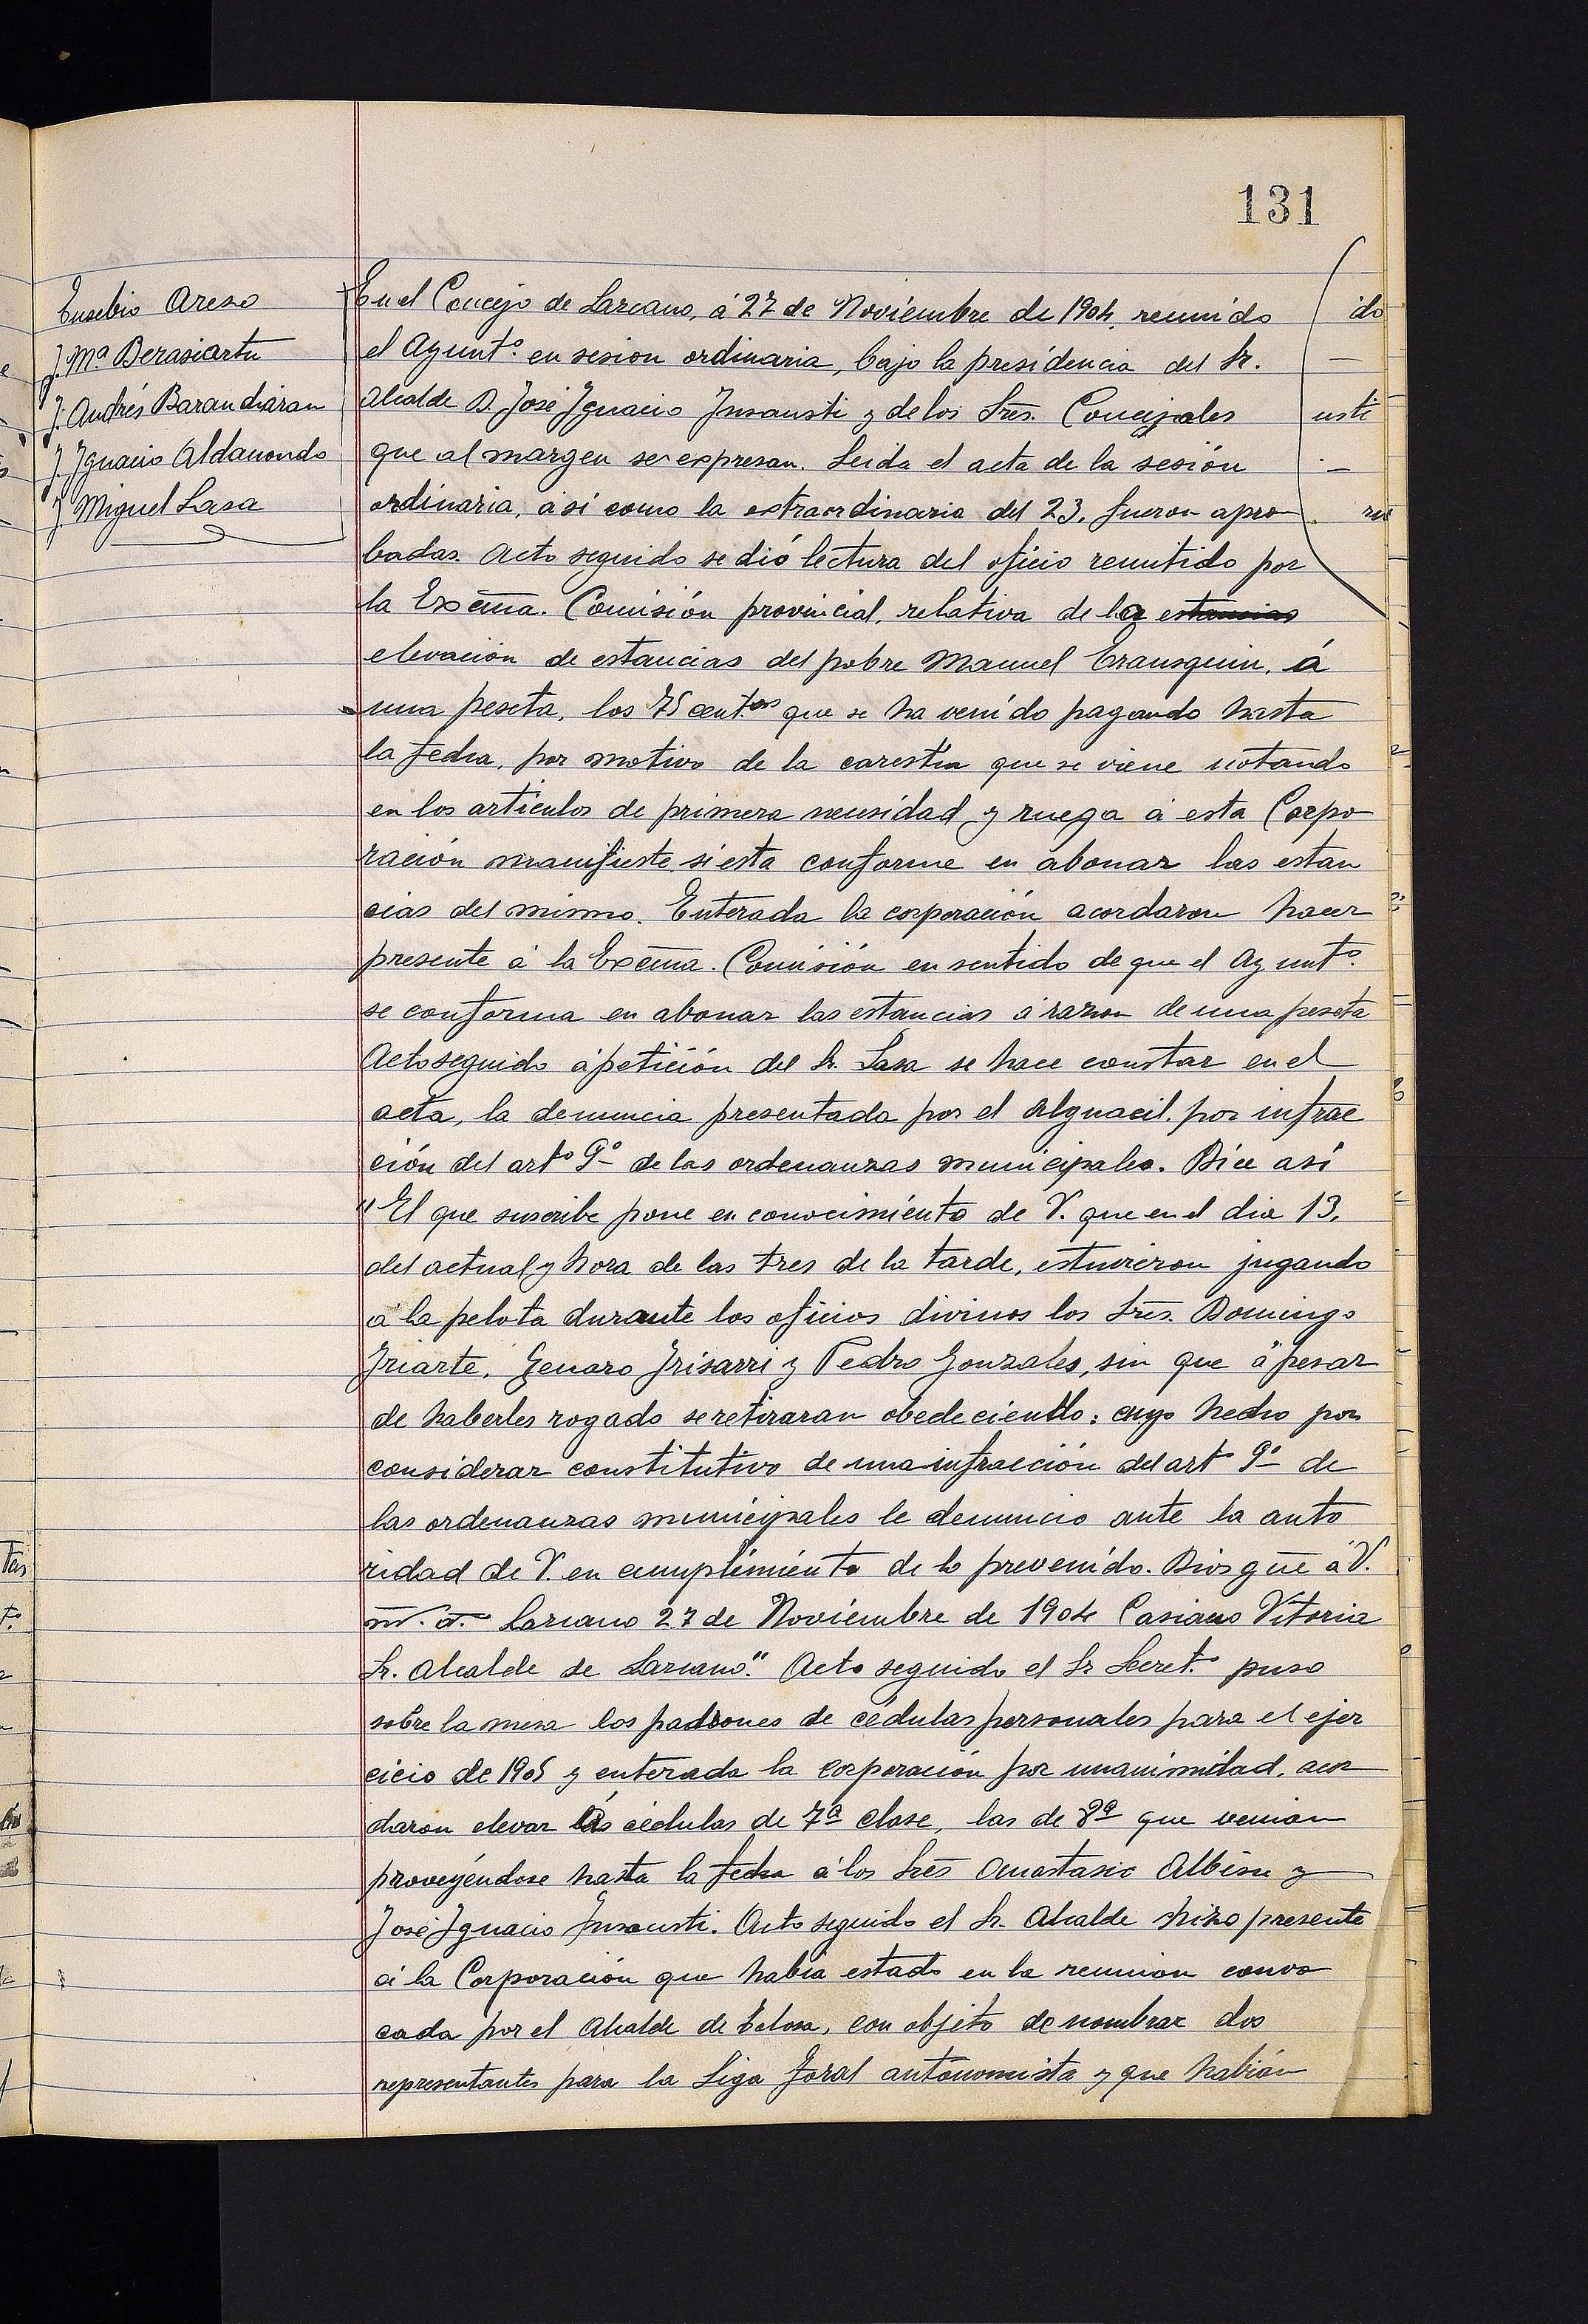 131
Eusebio Areso
J. Mª Berasiartu
J. Andrés Barandiaran
J. Ignacio Aldanondo
J. Miguel Lasa
En el Concejo de Lazcano, á 27 de Noviembre de 1904, reunido
el Ayuntº. en sesion ordinaria, bajo la presidencia del Sr.
Alcalde D. José Ignacio Insausti y de los Sres. Concejales
que al margen se expresan. Leida el acta de la sesión
ordinaria, asi como la extraordinaria del 23, fueron apro
badas. Acto seguido se dió lectura del oficio remitido por
la Excma. Comisión provincial, relativa de la estancias
elevación de estancias del pobre Manuel Erausquin, á
una peseta, los 75 centos que se ha venido pagando hasta
la fecha, por motivo de la carestia que se viene notando
en los articulos de primera necesidad y ruega á esta Corpo
ración manifieste si esta conforme en abonar las estan
cias del mismo. Enterada la corporación acordaron hacer
presente á la Excma. Comisión en sentido de que el Ayuntº.
se conforma en abonar las estancias á razon de una peseta
Acto seguido á petición del Sr. Lasa se hace constar en el
acta, la denuncia presentada por el Alguacil, por infrac
ción del artº 9º de las ordenanzas municipales. Dice asi
"El que suscribe pone en conocimiento de V. que en el dia 13,
del actual y hora de las tres de la tarde, estuvieron jugando
á la pelota durante los oficios divinos los Sres. Domingo
Iriarte, Genaro Irisarri y Pedro Gonzales, sin que á pesar
de haberles rogado se retiraran obedeciendo: cuyo hecho por
considerar constitutivo de una infracción del artº 9º de
las ordenanzas municipales le denuncio ante la auto
ridad de V. en cumplimiento de lo prevenido. Dios gue á V.
m. a. Lazcano 27 de Noviembre de 1904 Casiano Vitoria
Sr. Alcalde de Lazcano." Acto seguido el Sr Secretº. puso
sobre la mesa los padrones de cédulas personales para el ejer
cicio de 1905 y enterada la corporación por unanimidad, acor
daron elevar las cédulas de 7ª clase, las de 8ª que venian
proveyéndose hasta la fecha á los Sres Anastasio Albisu y
José Ignacio Insausti. Acto seguido el Sr. Alcalde hizo presente
á la Corporación que habia estado en la reunion convo
cada por el Alcalde de Tolosa, con objeto de nombrar dos
representantes para la Liga foral autonomista y que habian